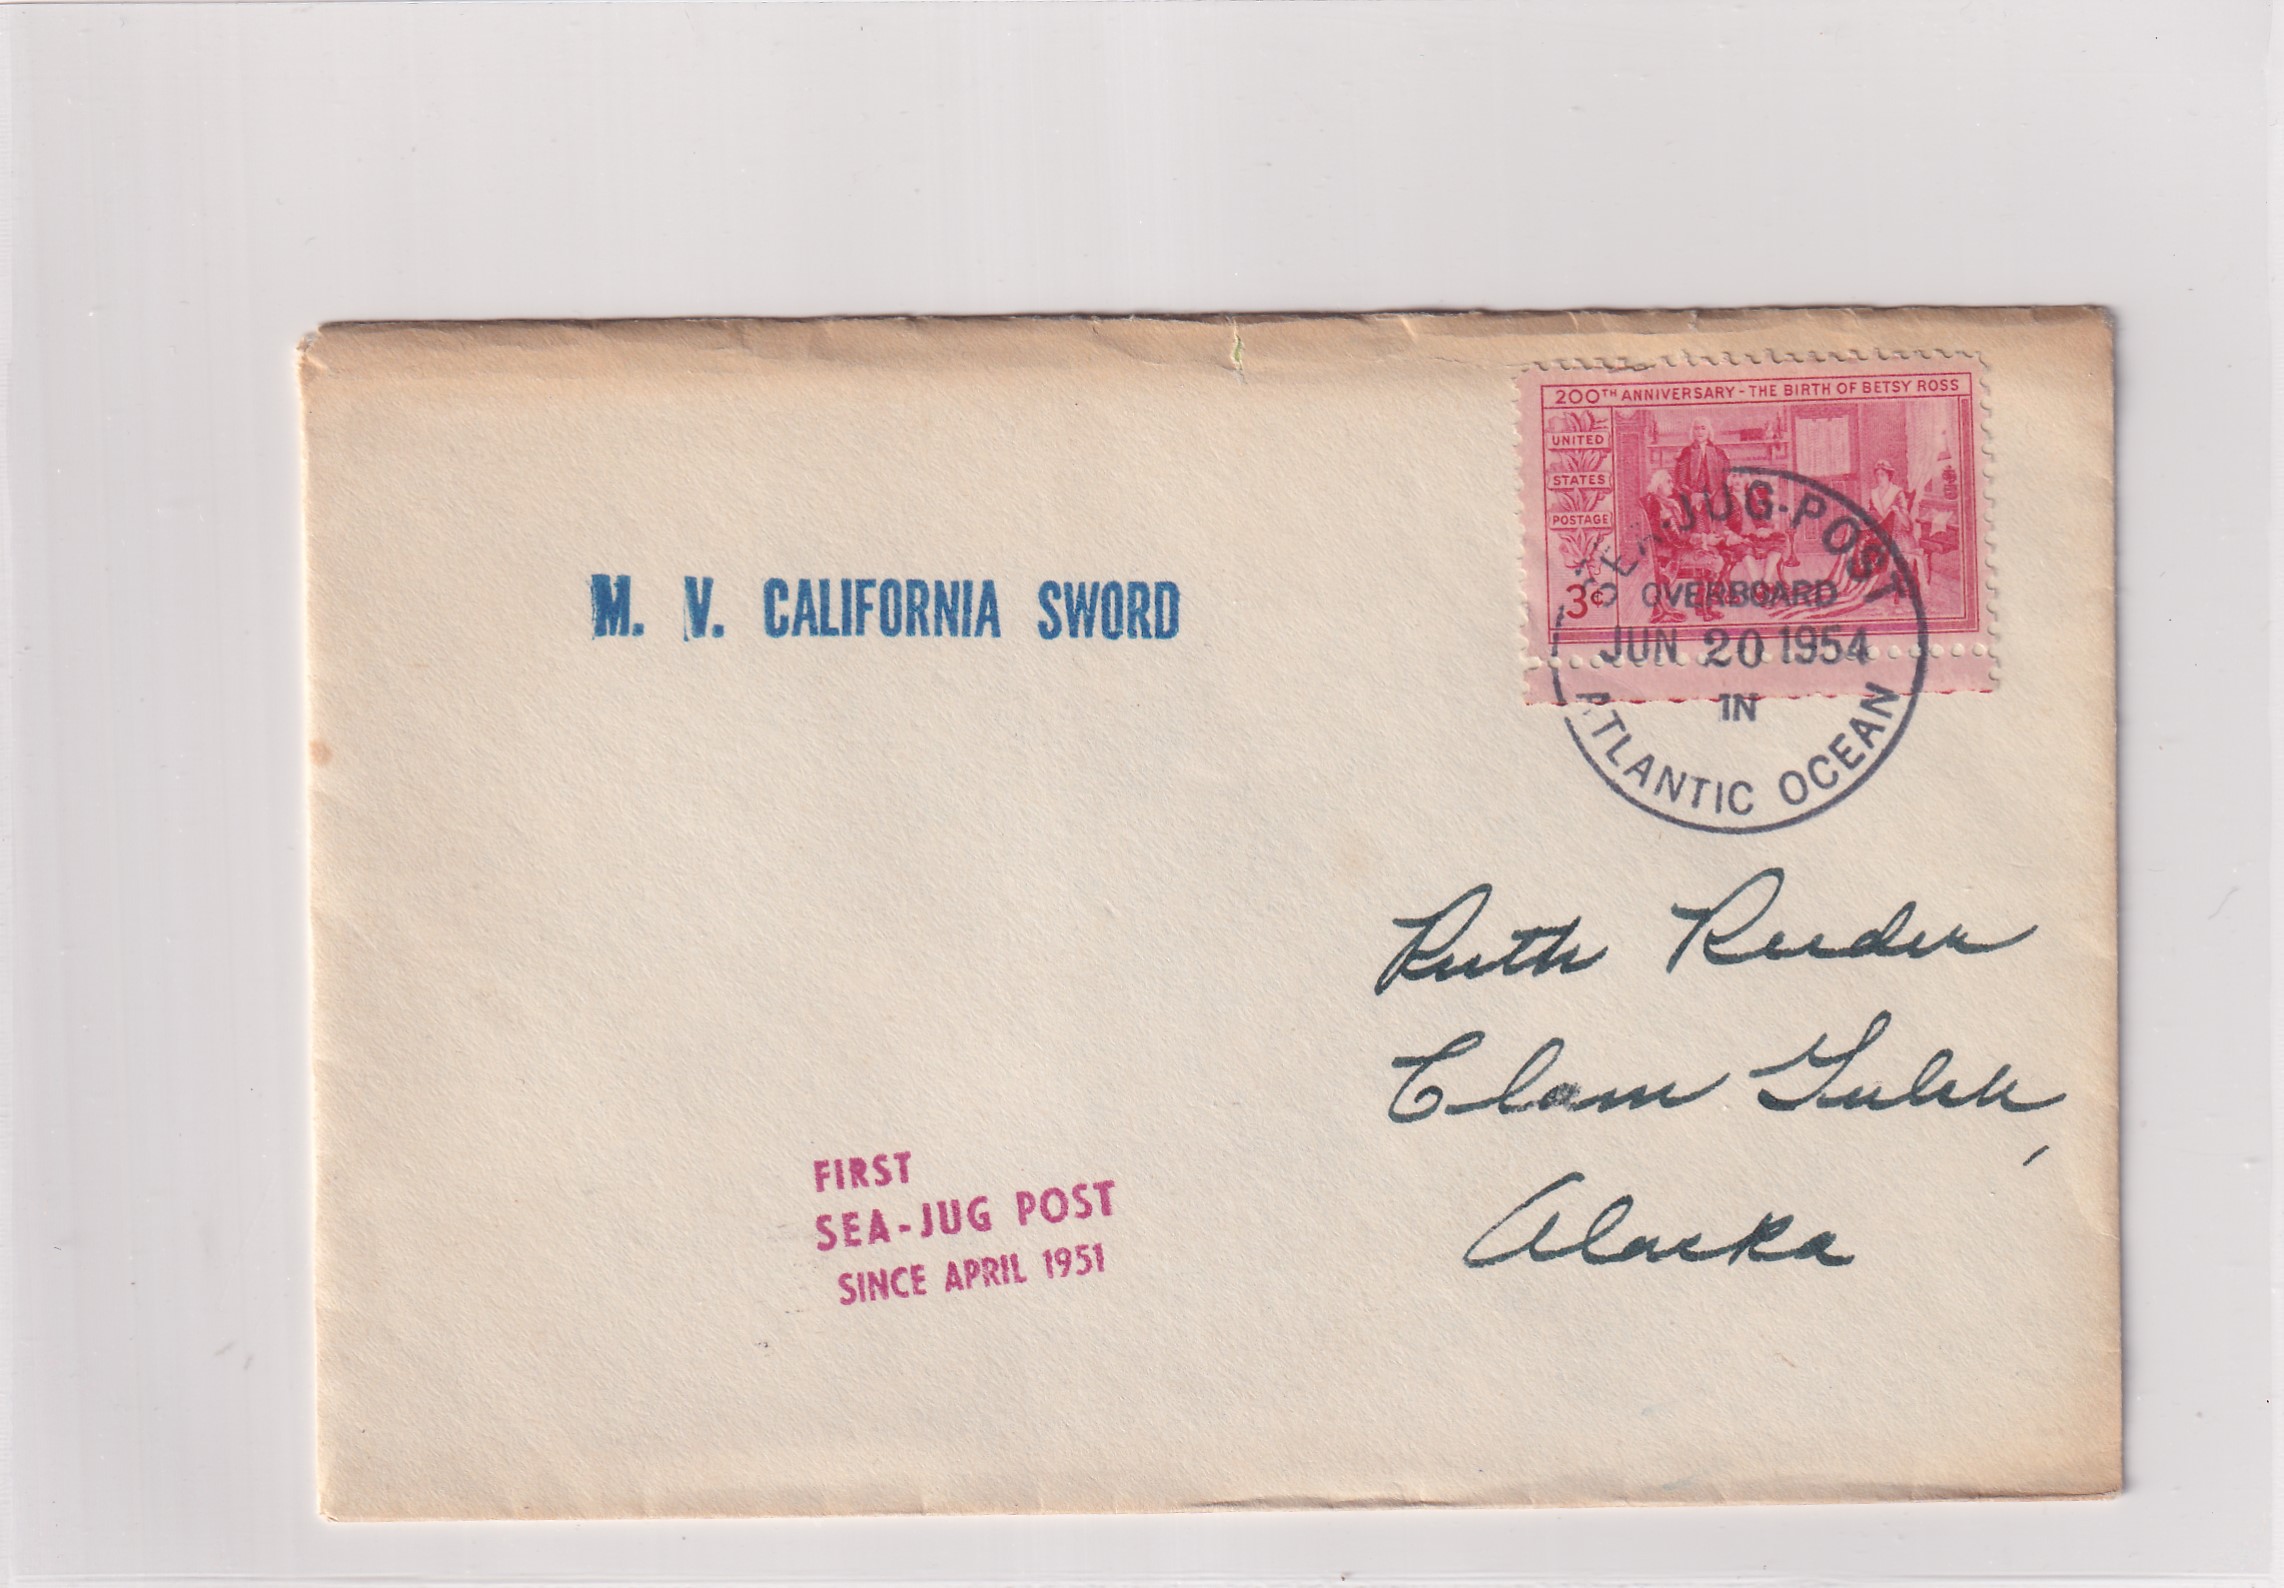 200TH ANNIVERSARY - THE BIRTH OF BETSY ROSS
UNITED
STATES
POSTAGE
3¢
SEA-JUG-POST
OVERBOARD
JUN 20 1954
IN
ATLANTIC OCEAN
M. V. CALIFORNIA SWORD
Ruth Reeder
Clam Gulch,
Alaska
FIRST
SEA-JUG POST
SINCE APRIL 1951